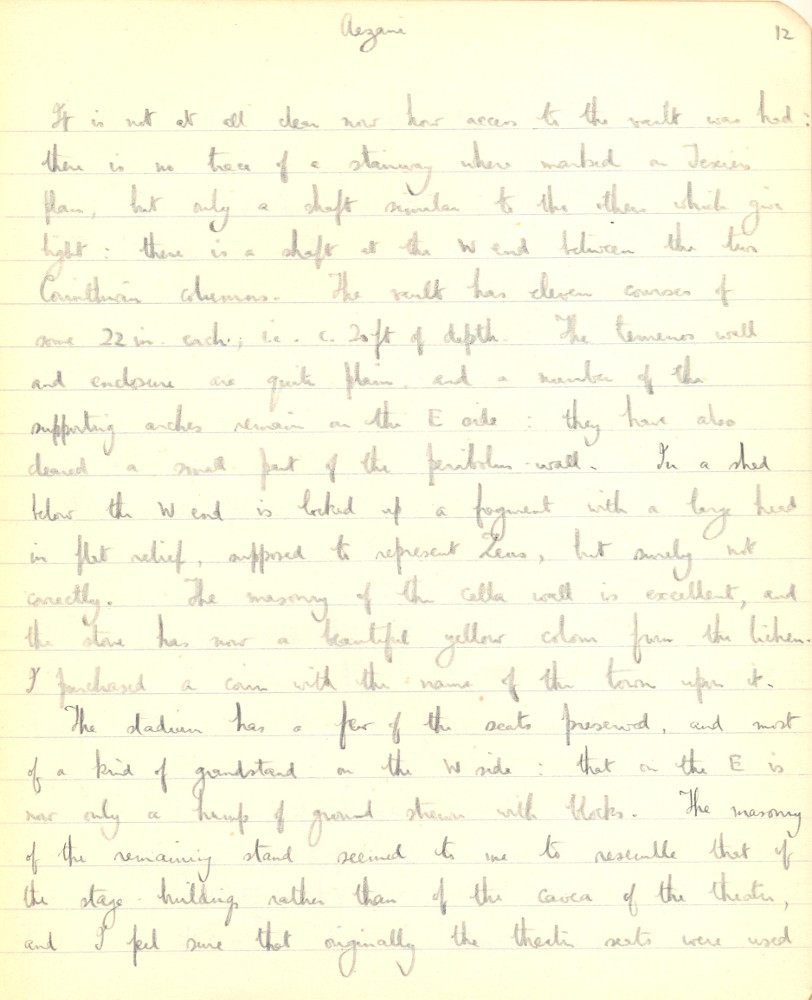 Aezani
12
It is not at all clear now how access to the vault was had:
there is no trace of a stairway where marked on Texier's
plan, but only a shaft similar to the others which give
light: there is a shaft at the W end between the two
Corinthian columns. The vault has eleven courses of
some 22 in. each; i.e. c. 20 ft of depth. The temenos wall
and enclosure are quite plain, and a number of the
supporting arches remain on the E side: they have also
cleared a small part of the peribolos-wall. In a shed
below the W end is locked up a fragment with a large head
in flat relief, supposed to represent Zeus, but surely not
correctly. The masonry of the cella wall is excellent, and
the stone has now a beautiful yellow colour from the lichen.
I purchased a coin with the name of the town upon it.
The stadium has a few of the seats preserved, and most
of a kind of grandstand on the W side: that on the E is
now only a hump of ground strewn with blocks. The masonry
of the remaining stand seemed to me to resemble that of
the stage-building, rather than of the cavea of the theatre,
and I feel sure that originally the theatre seats were used